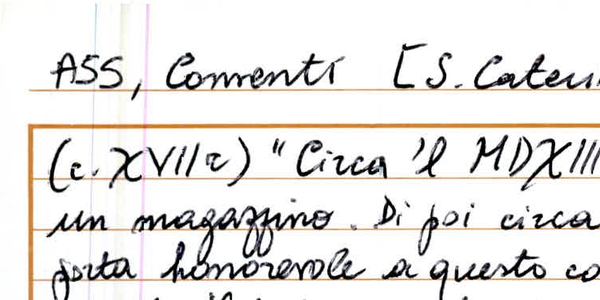 ASS, Conventi [S. Cateri
(c. XVII r) "Circa 'l MDXIII
un magazzino. Di poi circa
porta honorevole a questo co